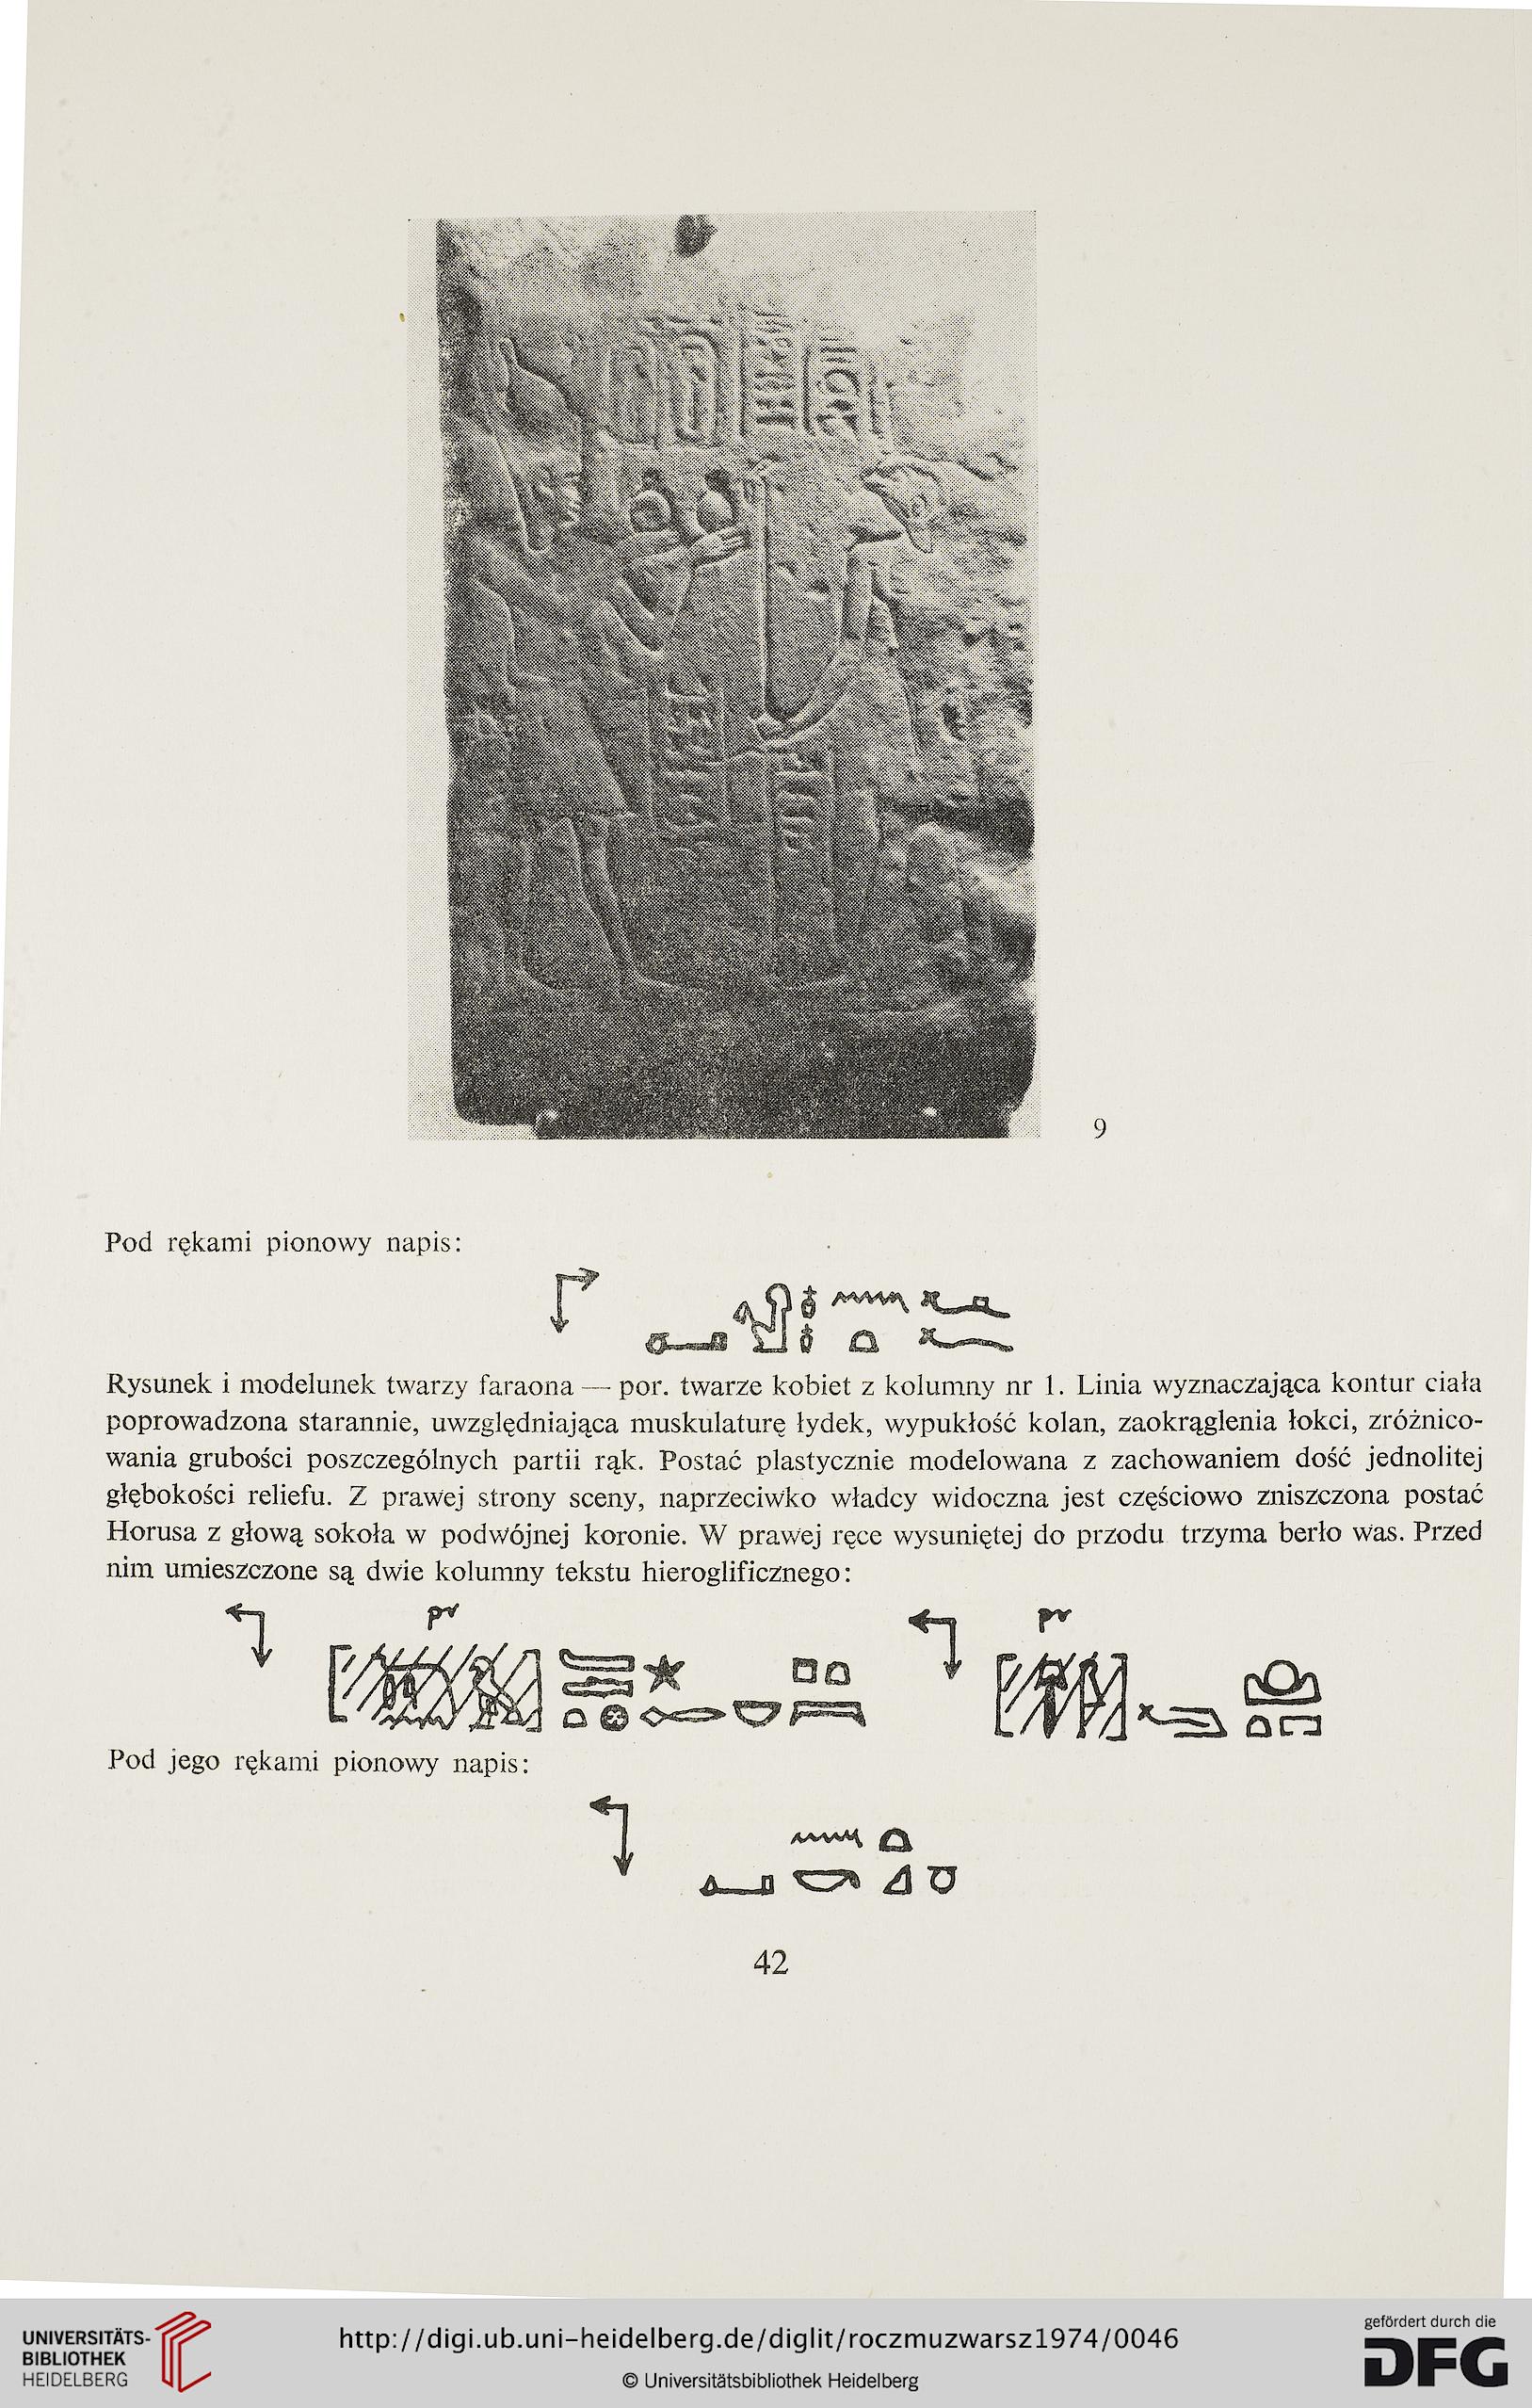 9
Pod rękami pionowy napis:
Rysunek i modelunek twarzy faraona — por. twarze kobiet z kolumny nr 1. Linia wyznaczająca kontur ciała
poprowadzona starannie, uwzględniająca muskulaturę łydek, wypukłość kolan, zaokrąglenia łokci, zróżnico-
wania grubości poszczególnych partii rąk. Postać plastycznie modelowana z zachowaniem dość jednolitej
głębokości reliefu. Z prawej strony sceny, naprzeciwko władcy widoczna jest częściowo zniszczona postać
Horusa z głową sokoła w podwójnej koronie. W prawej ręce wysuniętej do przodu trzyma berło was. Przed
nim umieszczone są dwie kolumny tekstu hieroglificznego:
pr pr
Pod jego rękami pionowy napis:
42
UNIVERSITÄTS-
BIBLIOTHEK
HEIDELBERG
http://digi.ub.uni-heidelberg.de/diglit/roczmuzwarsz1974/0046
© Universitätsbibliothek Heidelberg
gefördert durch die
DFG